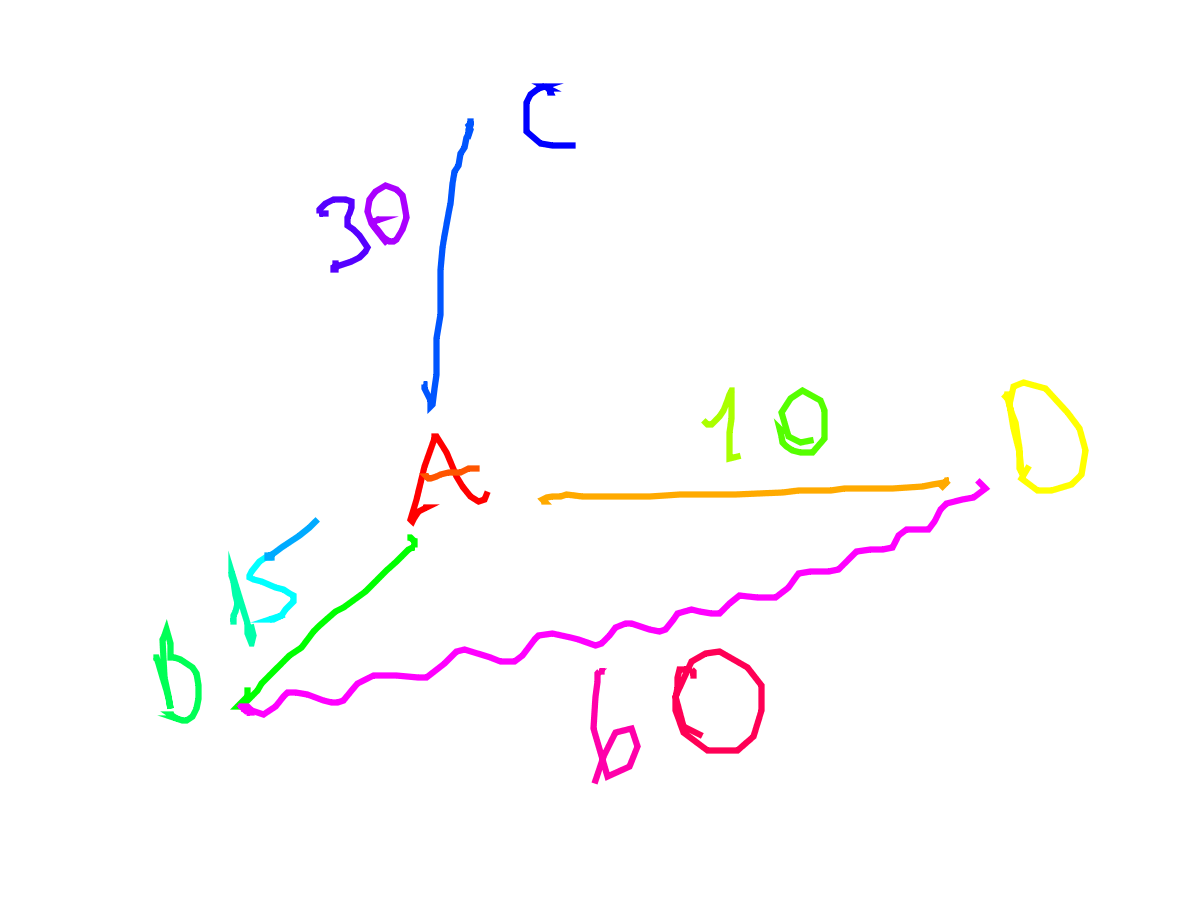 C
30
10
D
A
15
b
60